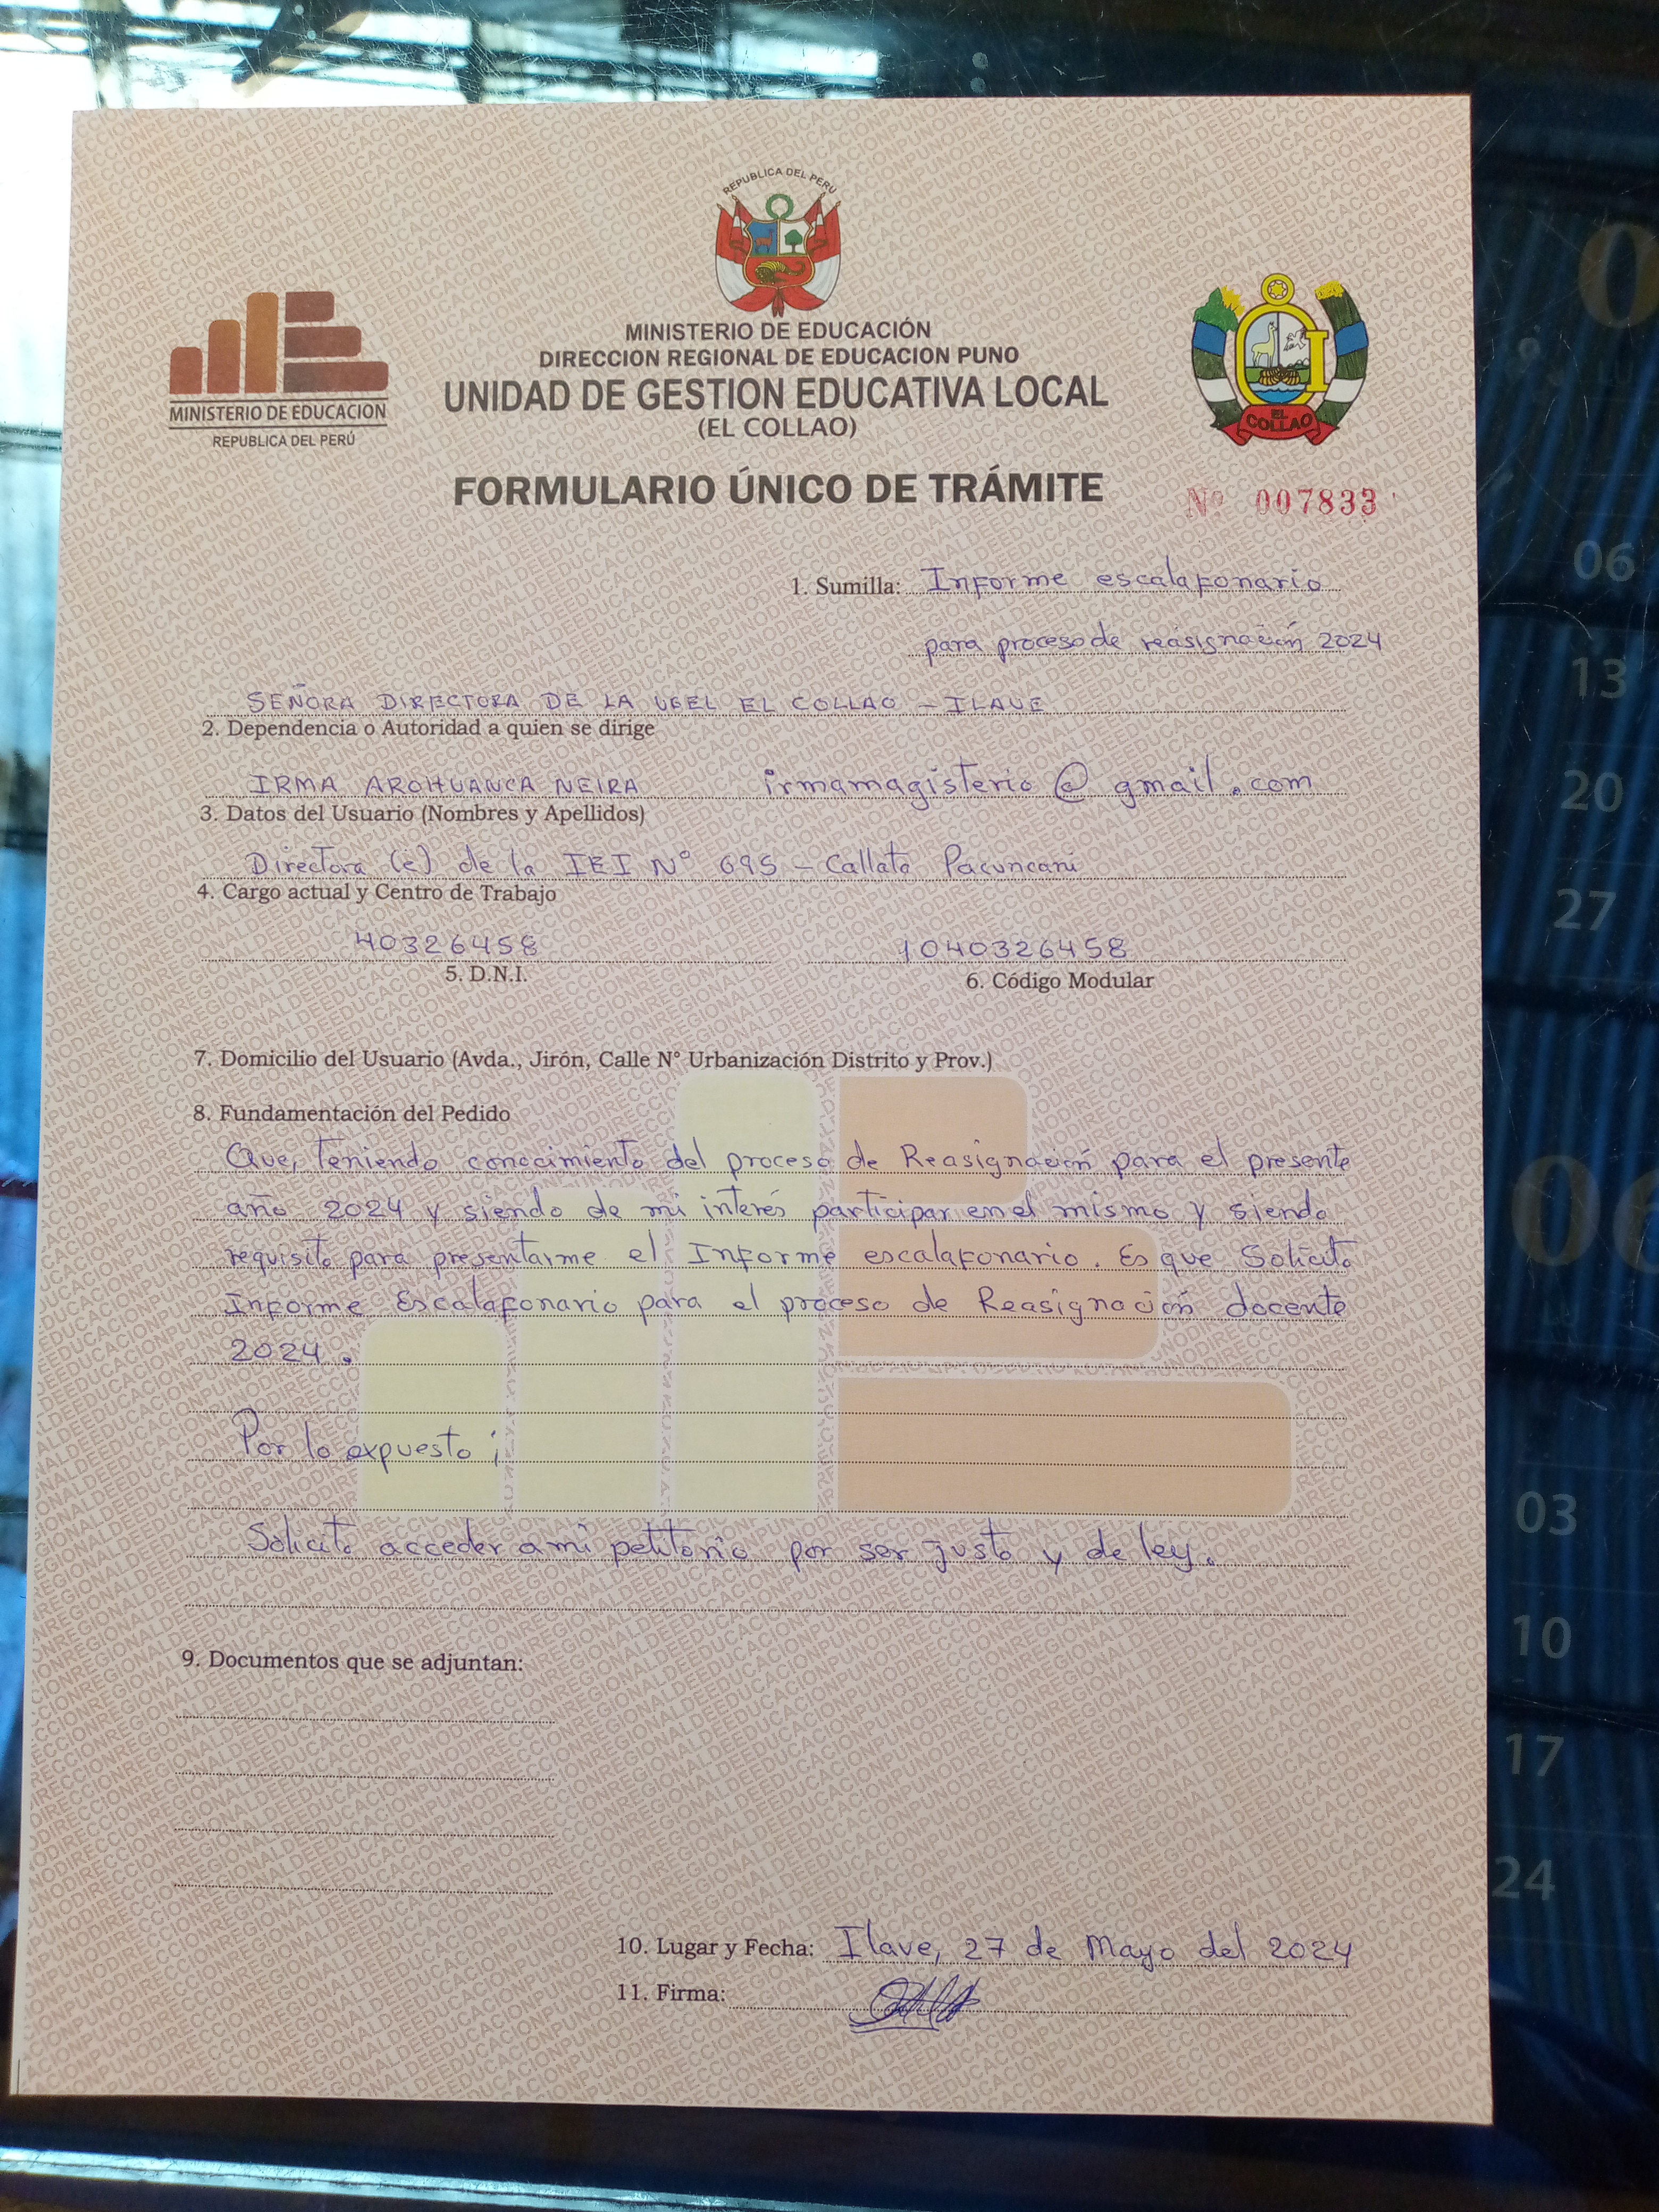 REPUBLICA DEL PERÚ
MINISTERIO DE EDUCACIÓN
DIRECCION REGIONAL DE EDUCACION PUNO
UNIDAD DE GESTION EDUCATIVA LOCAL
(EL COLLAO)
MINISTERIO DE EDUCACION
REPUBLICA DEL PERÚ
EL COLLAO
FORMULARIO ÚNICO DE TRÁMITE
Nº 007833
1. Sumilla: Informe escalafonario
para proceso de reasignación 2024
SEÑORA DIRECTORA DE LA UGEL EL COLLAO - ILAVE
2. Dependencia o Autoridad a quien se dirige
IRMA AROHUANCA NEIRA irmamagisterio@gmail.com
3. Datos del Usuario (Nombres y Apellidos)
Directora (e) de la IEI Nº 695 - Callata Pacuncani
4. Cargo actual y Centro de Trabajo
40326458 1040326458
5. D.N.I. 6. Código Modular
7. Domicilio del Usuario (Avda., Jirón, Calle N° Urbanización Distrito y Prov.)
8. Fundamentación del Pedido
Que, teniendo conocimiento del proceso de Reasignación para el presente
año 2024 y siendo de mi interés participar en el mismo y siendo
requisito para presentarme el Informe escalafonario. Es que Solicito
Informe Escalafonario para el proceso de Reasignación docente
2024.
Por lo expuesto;
Solicito acceder a mi petitorio por ser justo y de ley.
9. Documentos que se adjuntan:
10. Lugar y Fecha: Ilave, 27 de Mayo del 2024
11. Firma:
06
13
20
27
03
10
17
24